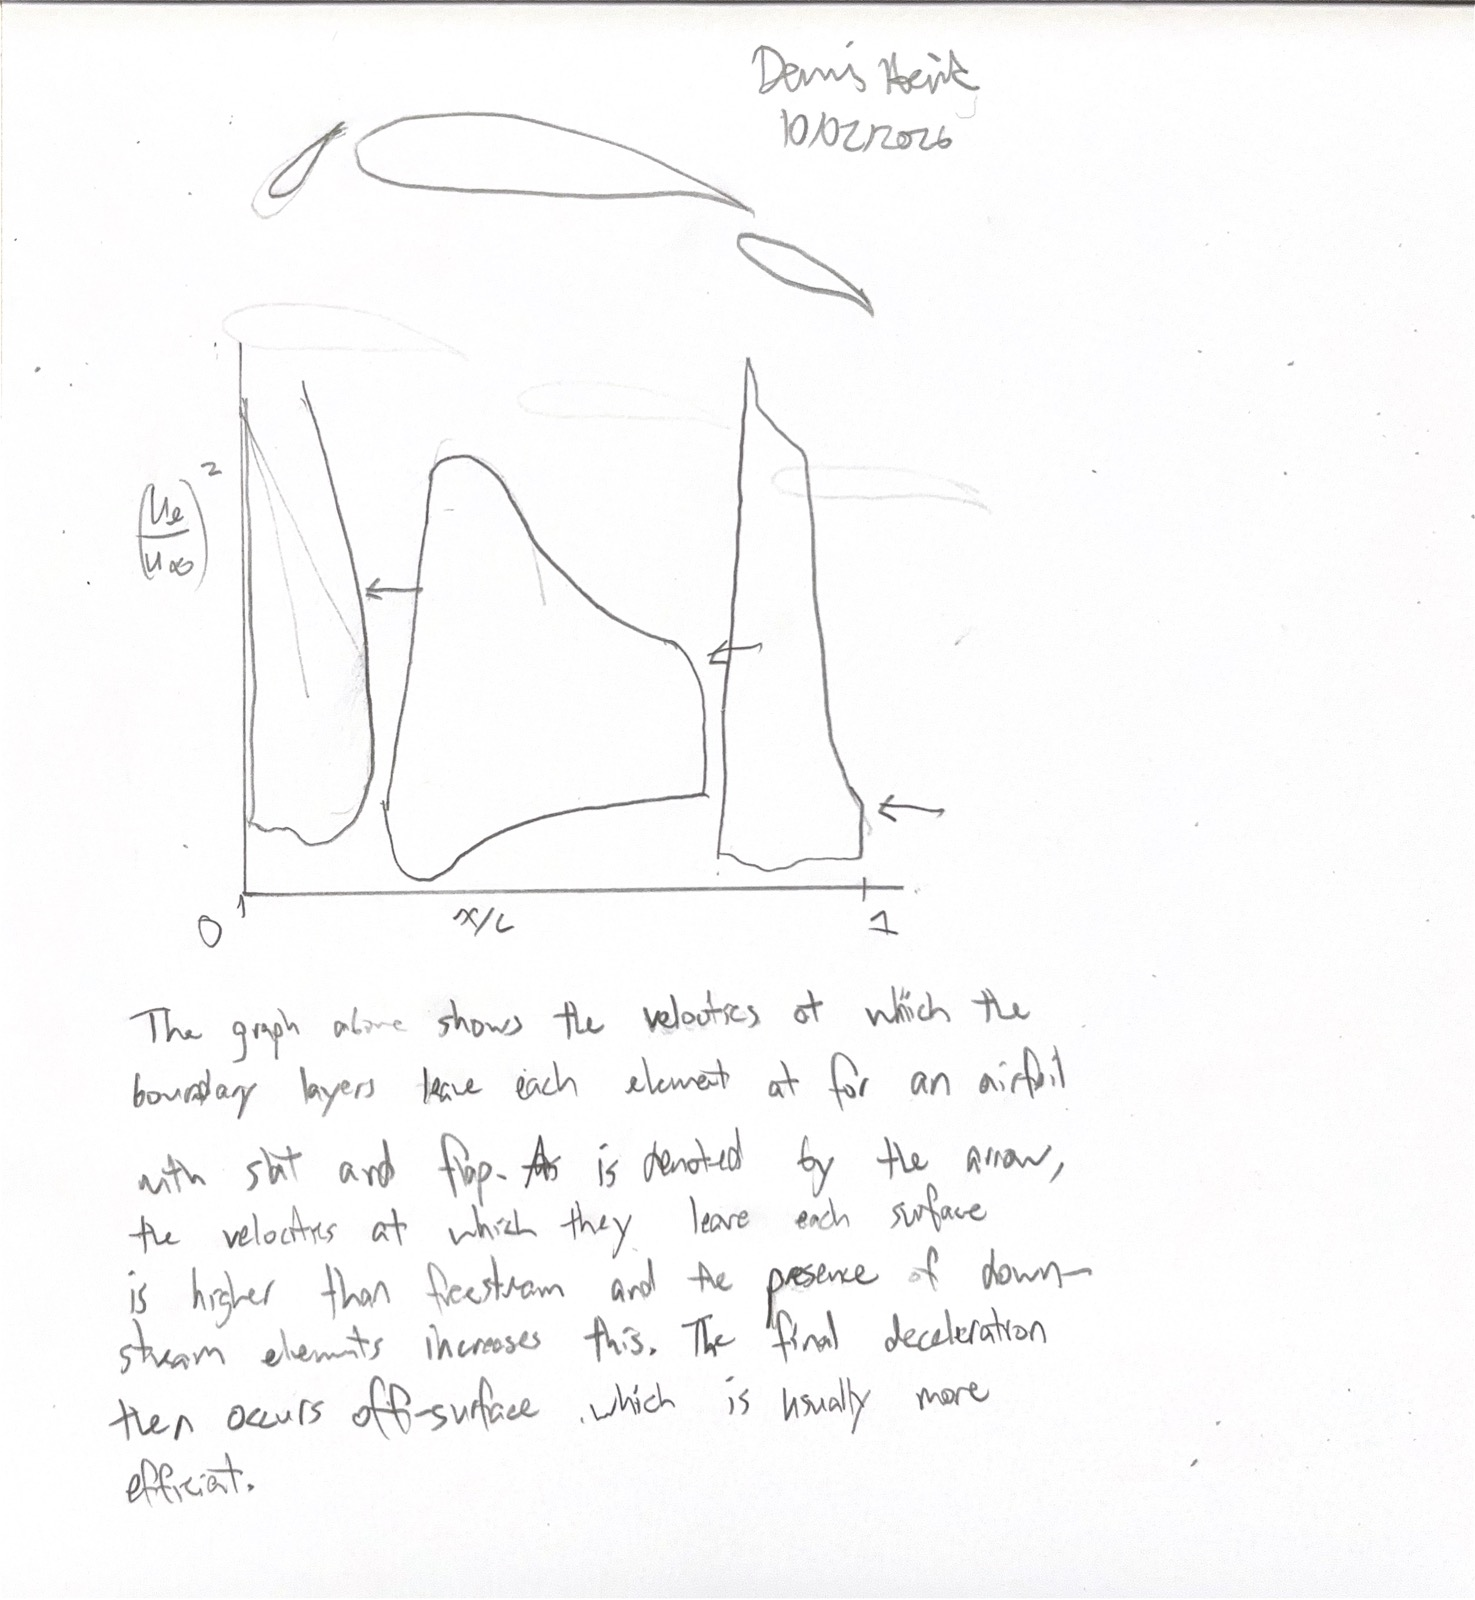 Dennis
10/02/2026
(ue/u∞)²
0
x/L
1
The graph above shows the velocities at which the
boundary layers leave each element at for an airfoil
with slat and flap. As is denoted by the arrow,
the velocities at which they leave each surface
is higher than freestream and the presence of down-
stream elements increases this. The final deceleration
then occurs off-surface which is usually more
efficient.